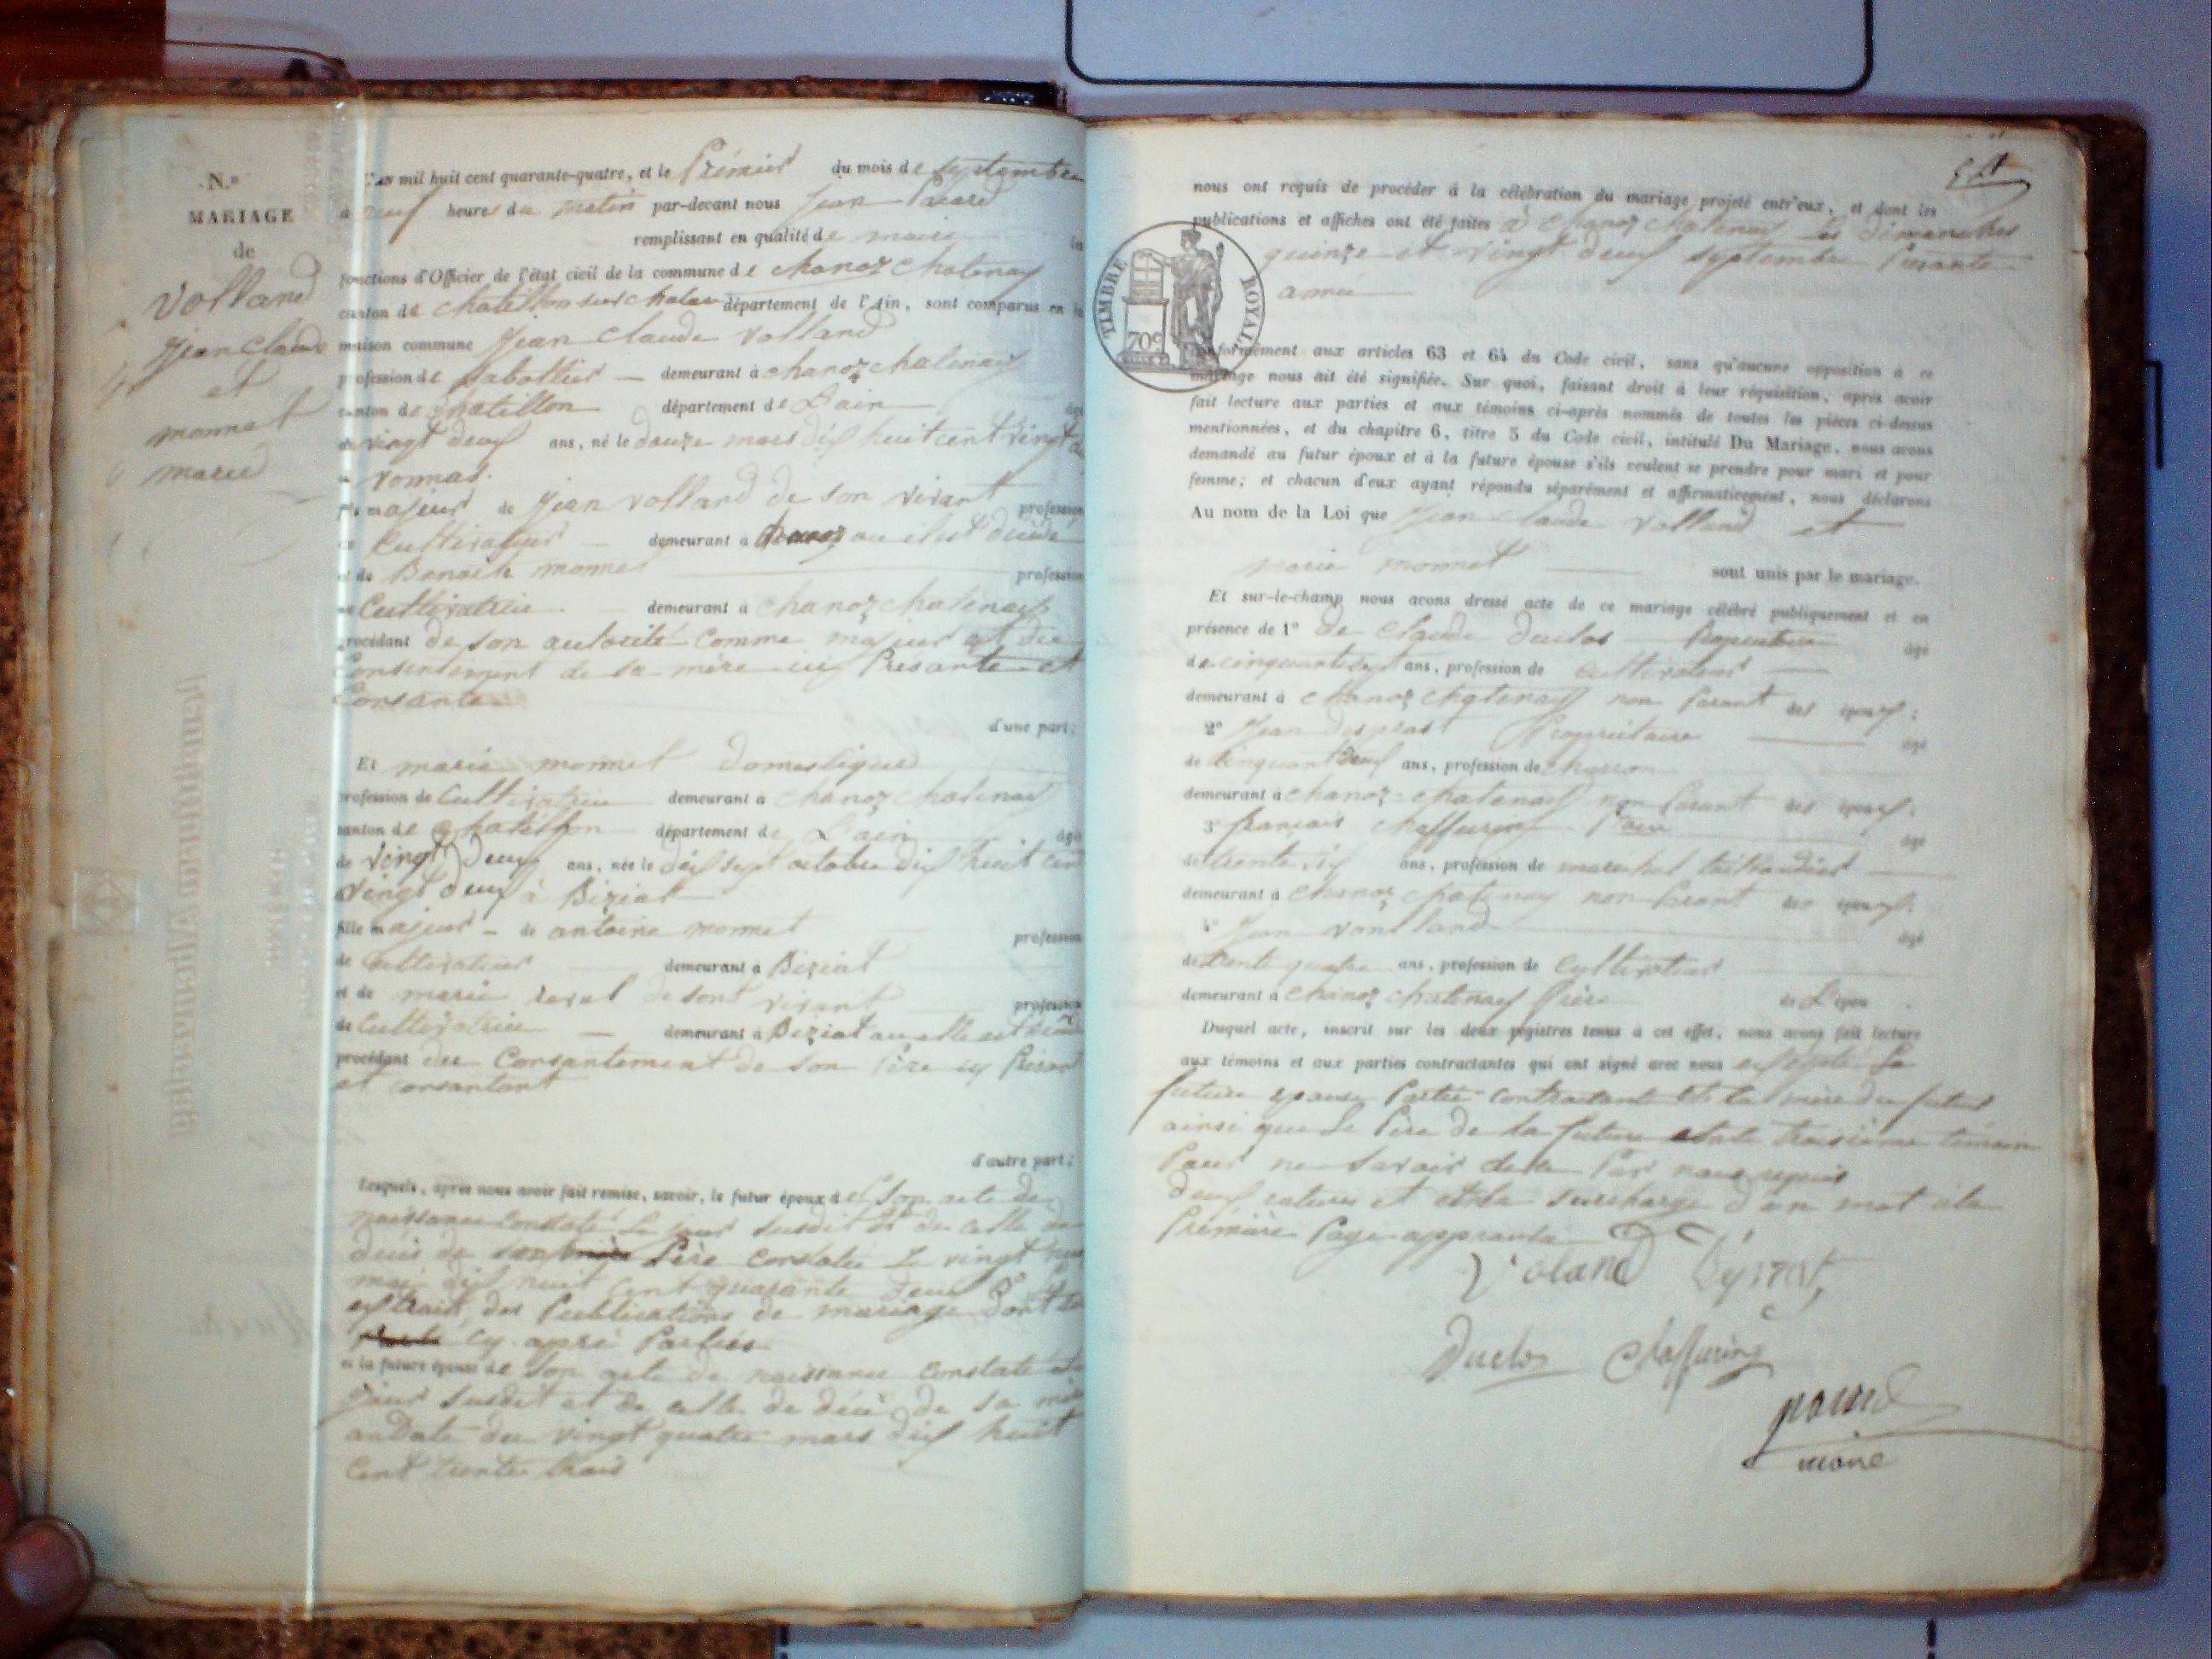 N.º
MARIAGE
de
Volland
Jean Claude
et
monnet
marie
L'an mil huit cent quarante-quatre, et le Prémier du mois de septembre
à neuf heures du matin par-devant nous Jean
remplissant en qualité de maire les
fonctions d'Officier de l'état civil de la commune de chanoz chatenay
canton de chatillon sur chalar département de l'Ain, sont comparus en la
maison commune Jean claude volland
profession de sabottier demeurant à chanoz chatenay
canton de chatillon département de L'ain âgé
de vingt deux ans, né le douze mars dix huit cent vingt
à vonnas.
fils majeur de Jean volland de son vivant profession
de Cultivateur demeurant à ou il est décédé
et de Benoite monnet profession
de Cultivatrice demeurant à chanoz chatenay
procédant de son autorité comme majeur et du
Consentement de sa mère icy Présante et
Consante
d'une part;
Et marie monnet domestique
profession de Cultivatrice demeurant à chanoz chatenay
canton de chatillon département de L'ain âgée
de vingt deux ans, née le dix sept octobre dix huit cent
vingt deux à Biziat
fille majeur de antoine monnet profession
de Cultivateur demeurant à Biziat
et de marie revel de sont vivant profession
de Cultivatrice demeurant à Beziat ou elle est
procédant du Consantement de son Père icy Présant
et consantant
d'autre part;
Lesquels, après nous avoir fait remise, savoir, le futur époux de son acte de
naissance constaté le jour susdit et de celle de
décis de son Père constatée le vingt
mai dix huit cent quarante deux
extrait des Publications de mariage dont
cy après Parlées
et la future épouse de son acte de naissance constaté
jour susdit et de celle de décè de sa mère
an Date du vingt quatre mars dix huit
cent trente trois
nous ont requis de procéder à la célébration du mariage projeté entr'eux, et dont les
publications et affiches ont été faites à chanoz chatenay les dimanches
quinze et vingt deux septembre Présante
année
TIMBRE ROYAL
70c
conformément aux articles 63 et 64 du Code civil, sans qu'aucune opposition à ce
mariage nous ait été signifiée. Sur quoi, faisant droit à leur réquisition, après avoir
fait lecture aux parties et aux témoins ci-après nommés de toutes les pièces ci-dessus
mentionnées, et du chapitre 6, titre 5 du Code civil, intitulé Du Mariage, nous avons
demandé au futur époux et à la future épouse s'ils veulent se prendre pour mari et pour
femme; et chacun d'eux ayant répondu séparément et affirmativement, nous déclarons
Au nom de la Loi que Jean claude volland et
marie monnet sont unis par le mariage.
Et sur-le-champ nous avons dressé acte de ce mariage célébré publiquement et en
présence de 1º de claude duclos âgé
de cinquante sept ans, profession de cultivateur
demeurant à chanoz chatenay non Parant des époux;
2º Jean Propriétaire âgé
de Cinquant deux ans, profession de charron
demeurant à chanoz chatenay non Parant des époux;
3º français chaffurin âgé
de trente six ans, profession de marechal
demeurant à chanoz chatenay non Parant des époux;
4º Jean volland âgé
de trente quatre ans, profession de Cultivateur
demeurant à chanoz chatenay frère de L'époux.
Duquel acte, inscrit sur les deux registres tenus à cet effet, nous avons fait lecture
aux témoins et aux parties contractantes qui ont signé avec nous excepté La
future épouse Partie contractante et la mère du futur
ainsi que le Père de la future troisième témoin
Pour ne savoir de ce Par nous requis
deux ratures et la surcharge d'un mot à la
Prémière Page approuvé
Voland
Duclos Chaffurin
maire